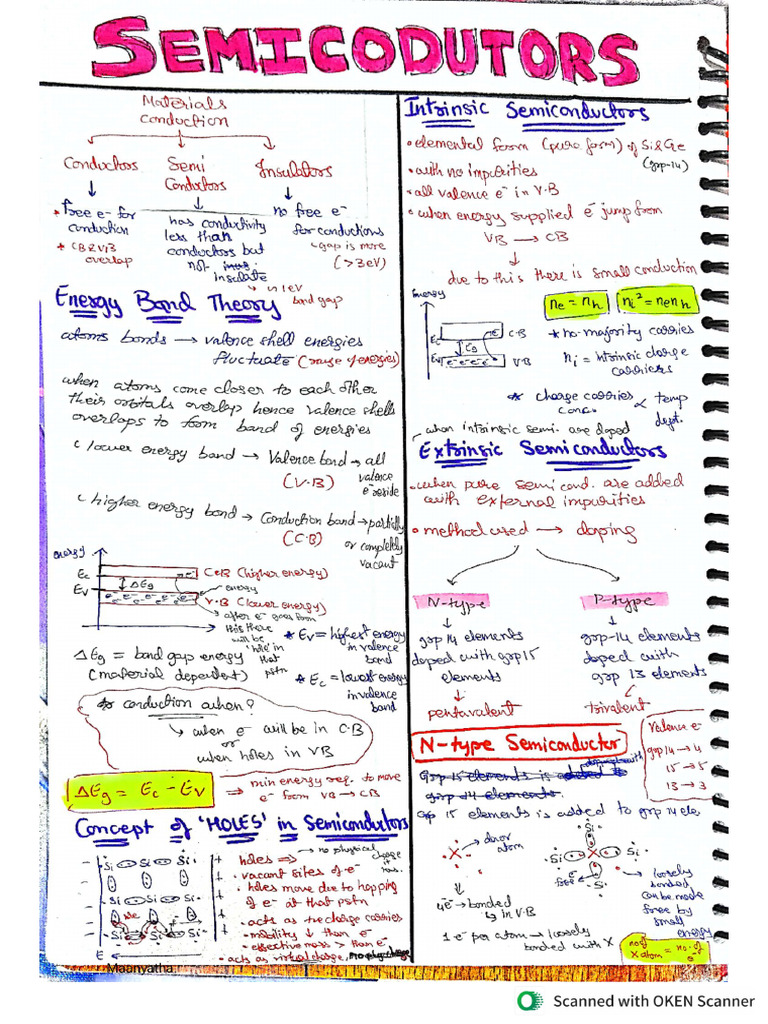 SEMICODUTORS
Materials
conduction
Conductors
Semi
Conductors
Insulators
* free e- for
conduction
* CB & VB
overlap
has conductivity
less than
conductors but
not
insulate
~1eV
band gap
no free e-
for conductions
gap is more
(>3eV)
Energy Band Theory
atoms bonds → valence shell energies
fluctuate (range of energies)
when atoms come closer to each other
their orbitals overlap hence valence shells
overlaps to form band of energies
lower energy band → Valence band → all
(V.B)
valence
e- reside
higher energy band → Conduction band → partially
(C.B)
or completely
vacant
energy
Ec
Ev
ΔEg
e-
C.B (higher energy)
energy
e- e- e- e- e-
V.B (lower energy)
after e- goes from
this there
will be
'hole' in
that
pstn
* Ev = highest energy
in valence
band
ΔEg = band gap energy
(material dependent)
* Ec = lowest energy
in valence
band
conduction when?
↳ when e- will be in C.B
or
when holes in VB
ΔEg = Ec - Ev
⇒ min energy req. to move
e- from VB → CB
Concept of 'HOLES' in Semiconductors
Si Si Si
Si Si Si
Si Si Si
E
holes ⇒
no physical
charge
it has.
• vacant sites of e-
• holes move due to hopping
of e- at that pstn
• acts as +ve charge carriers
• mobility ↓ than e-
• effective mass > than e-
• acts as virtual charge,
Maanyatha
Intrinsic Semiconductors
• elemental form (pure form) of Si & Ge
(grp-14)
• with no impurities
• all valence e- in V.B
• when energy supplied e- jump from
VB → CB
↓
due to this there is small conduction
Energy
Ec
Ev
Eg
e-
C.B
e- e- e- e-
V.B
ne = nh
ni² = ne nh
* no majority carries
ni = intrinsic charge
carriers
* charge carries ∝ temp
conc.
dept.
when intrinsic semi. are doped
Extrinsic Semiconductors
• when pure semicond. are added
with external impurities
• method used → doping
N-type
↓
grp 14 elements
doped with grp 15
elements
↓
pentavalent
P-type
↓
grp-14 elements
doped with
grp 13 elements
↓
trivalent
N-type Semiconductor
Valence e-
grp 14 → 4
15 → 5
13 → 3
Grp 15 elements is added
grp 14 elements.
grp 15 elements is added to grp 14 ele
X
donor
atom
Si
Si X Si
Si
free e-
loosely
bonded
can be made
free by
small
energy
4e- → bonded
↳ in V.B
1 e- per atom → loosely
bonded with X
no of
X atom = no. of
e-
Scanned with OKEN Scanner